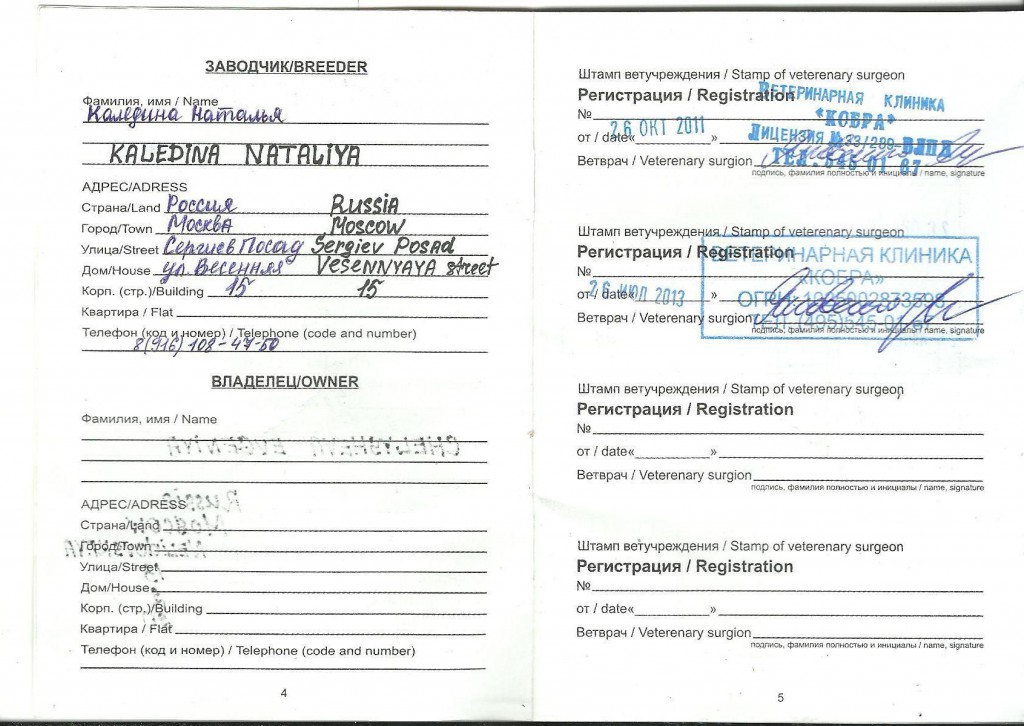 ЗАВОДЧИК/BREEDER
Фамилия, имя / Name
Каледина Наталья
KALEDINA NATALIYA
АДРЕС/ADRESS
Страна/Land Россия RUSSIA
Город/Town Москва MOSCOW
Улица/Street Сергиев Посад Sergiev Posad
Дом/House ул. Весенняя VESENNYAYA street
Корп. (стр.)/Building 15 15
Квартира / Flat
Телефон (код и номер) / Telephone (code and number)
8(916) 108-47-50
ВЛАДЕЛЕЦ/OWNER
Фамилия, имя / Name
АДРЕС/ADRESS
Страна/Land
Город/Town
Улица/Street
Дом/House
Корп. (стр.)/Building
Квартира / Flat
Телефон (код и номер) / Telephone (code and number)
4
Штамп ветучреждения / Stamp of veterenary surgeon
Регистрация / Registration
ВЕТЕРИНАРНАЯ КЛИНИКА
№
«КОБРА»
от / date« 26 ОКТ 2011 »
ЛИЦЕНЗИЯ
Ветврач / Veterenary surgion
ТЕЛ. 545 01 67
подпись, фамилия полностью и инициалы / name, signature
Штамп ветучреждения / Stamp of veterenary surgeon
Регистрация / Registration
ВЕТЕРИНАРНАЯ КЛИНИКА
№
«КОБРА»
от / date« 26 ИЮЛ 2013 »
ОГРН
Ветврач / Veterenary surgion
ТЕЛ. (495)545-01-67
подпись, фамилия полностью и инициалы / name, signature
Штамп ветучреждения / Stamp of veterenary surgeon
Регистрация / Registration
№
от / date« »
Ветврач / Veterenary surgion
подпись, фамилия полностью и инициалы / name, signature
Штамп ветучреждения / Stamp of veterenary surgeon
Регистрация / Registration
№
от / date« »
Ветврач / Veterenary surgion
подпись, фамилия полностью и инициалы / name, signature
5